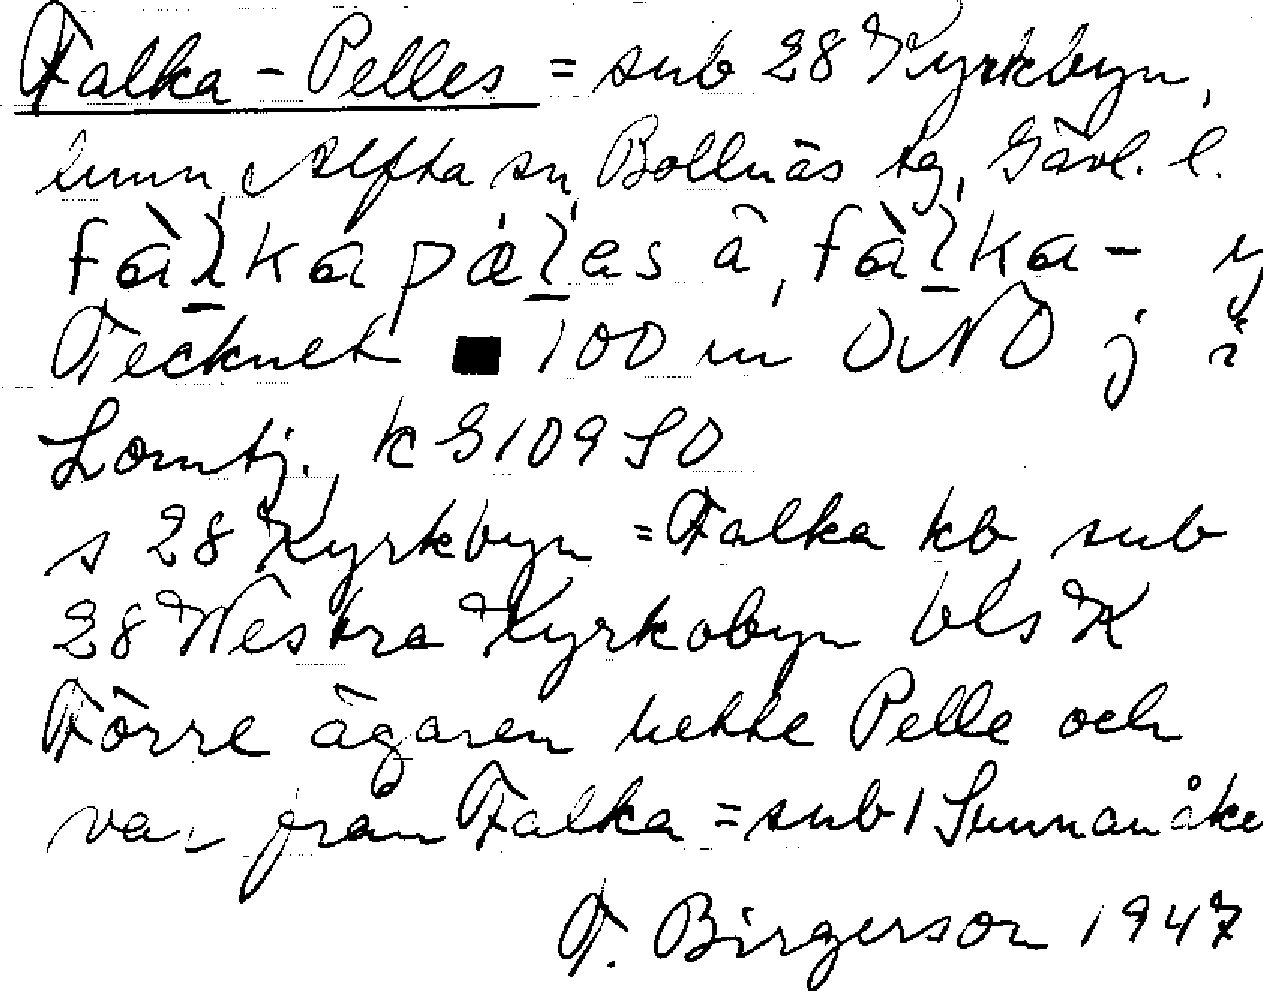 Falka-Pelles = sub 28 Kyrkbyn,
Alfta sn, Bollnäs tg, Gävl. l.
fàlka pæles â, fàlka-
Tecknet ■ 100 m ONO j i
Lomtj. k G 109 SO
s 28 Kyrkbyn = Falka kb sub
28 Westra Kyrkobyn bls K
Förre ägaren hette Pelle och
var från Falka = sub 1 Sunnanåke
F. Birgerson 1947